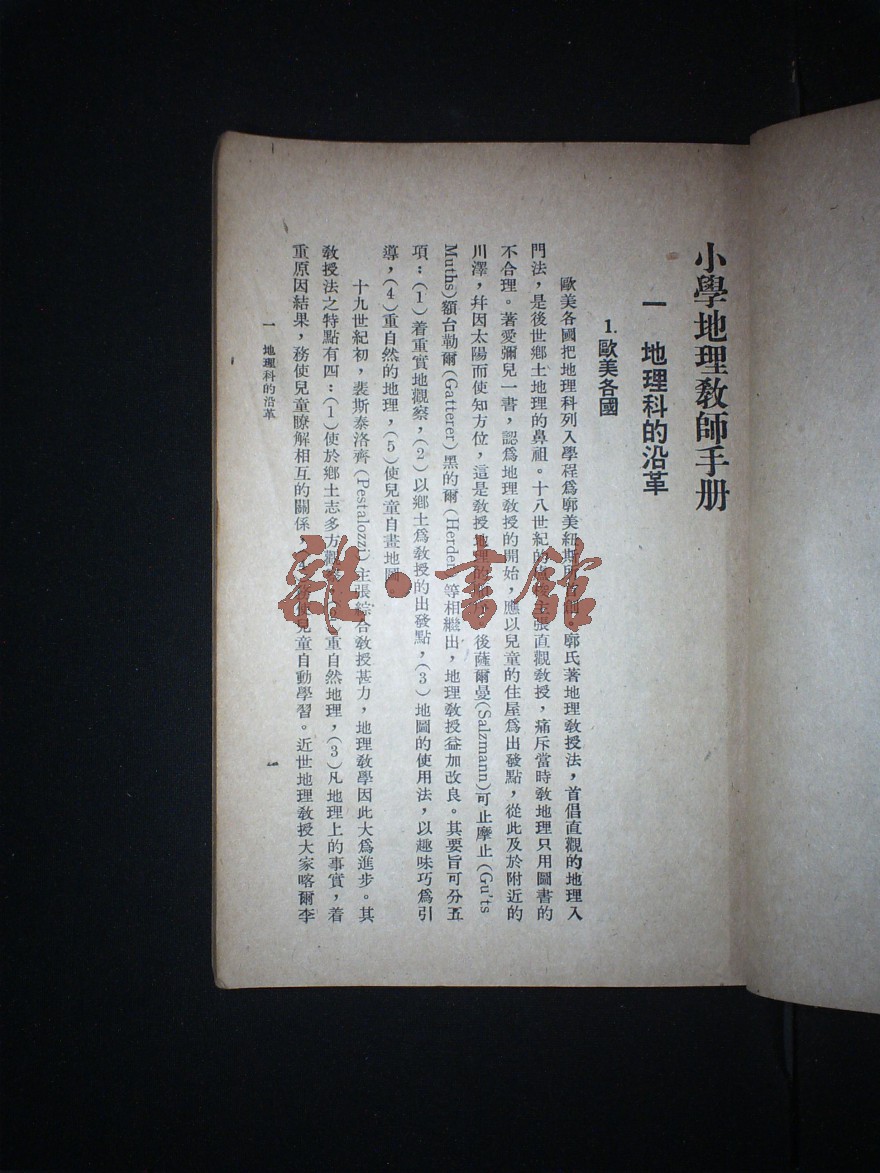 小學地理敎師手册
一 地理科的沿革
1.歐美各國
歐美各國把地理科列入學程爲郭美紐斯所創。郭氏著地理敎授法，首倡直觀的地理入
門法，是後世鄉土地理的鼻祖。十八世紀的主張直觀敎授，痛斥當時敎地理只用圖書的
不合理。著愛彌兒一書，認爲地理敎授的開始，應以兒童的住屋爲出發點，從此及於附近的
川澤，幷因太陽而使知方位，這是敎授地理的。後薩爾曼(Salzmann)可止摩止(Gu'ts
Muths)額台勒爾(Gatterer)黑的爾(Herder)等相繼出，地理敎授益加改良。其要旨可分五
項：(1)着重實地觀察，(2)以鄉土爲敎授的出發點，(3)地圖的使用法，以趣味巧爲引
導，(4)重自然的地理，(5)使兒童自畫地圖
十九世紀初，裴斯泰洛齊(Pestalozzi)主張綜合敎授甚力，地理敎學因此大爲進步。其
敎授法之特點有四：(1)使於鄉土志多方觀重自然地理，(3)凡地理上的事實，着
重原因結果，務使兒童瞭解相互的關係，兒童自動學習。近世地理敎授大家喀爾李
一 地理科的沿革
一
雜·書館